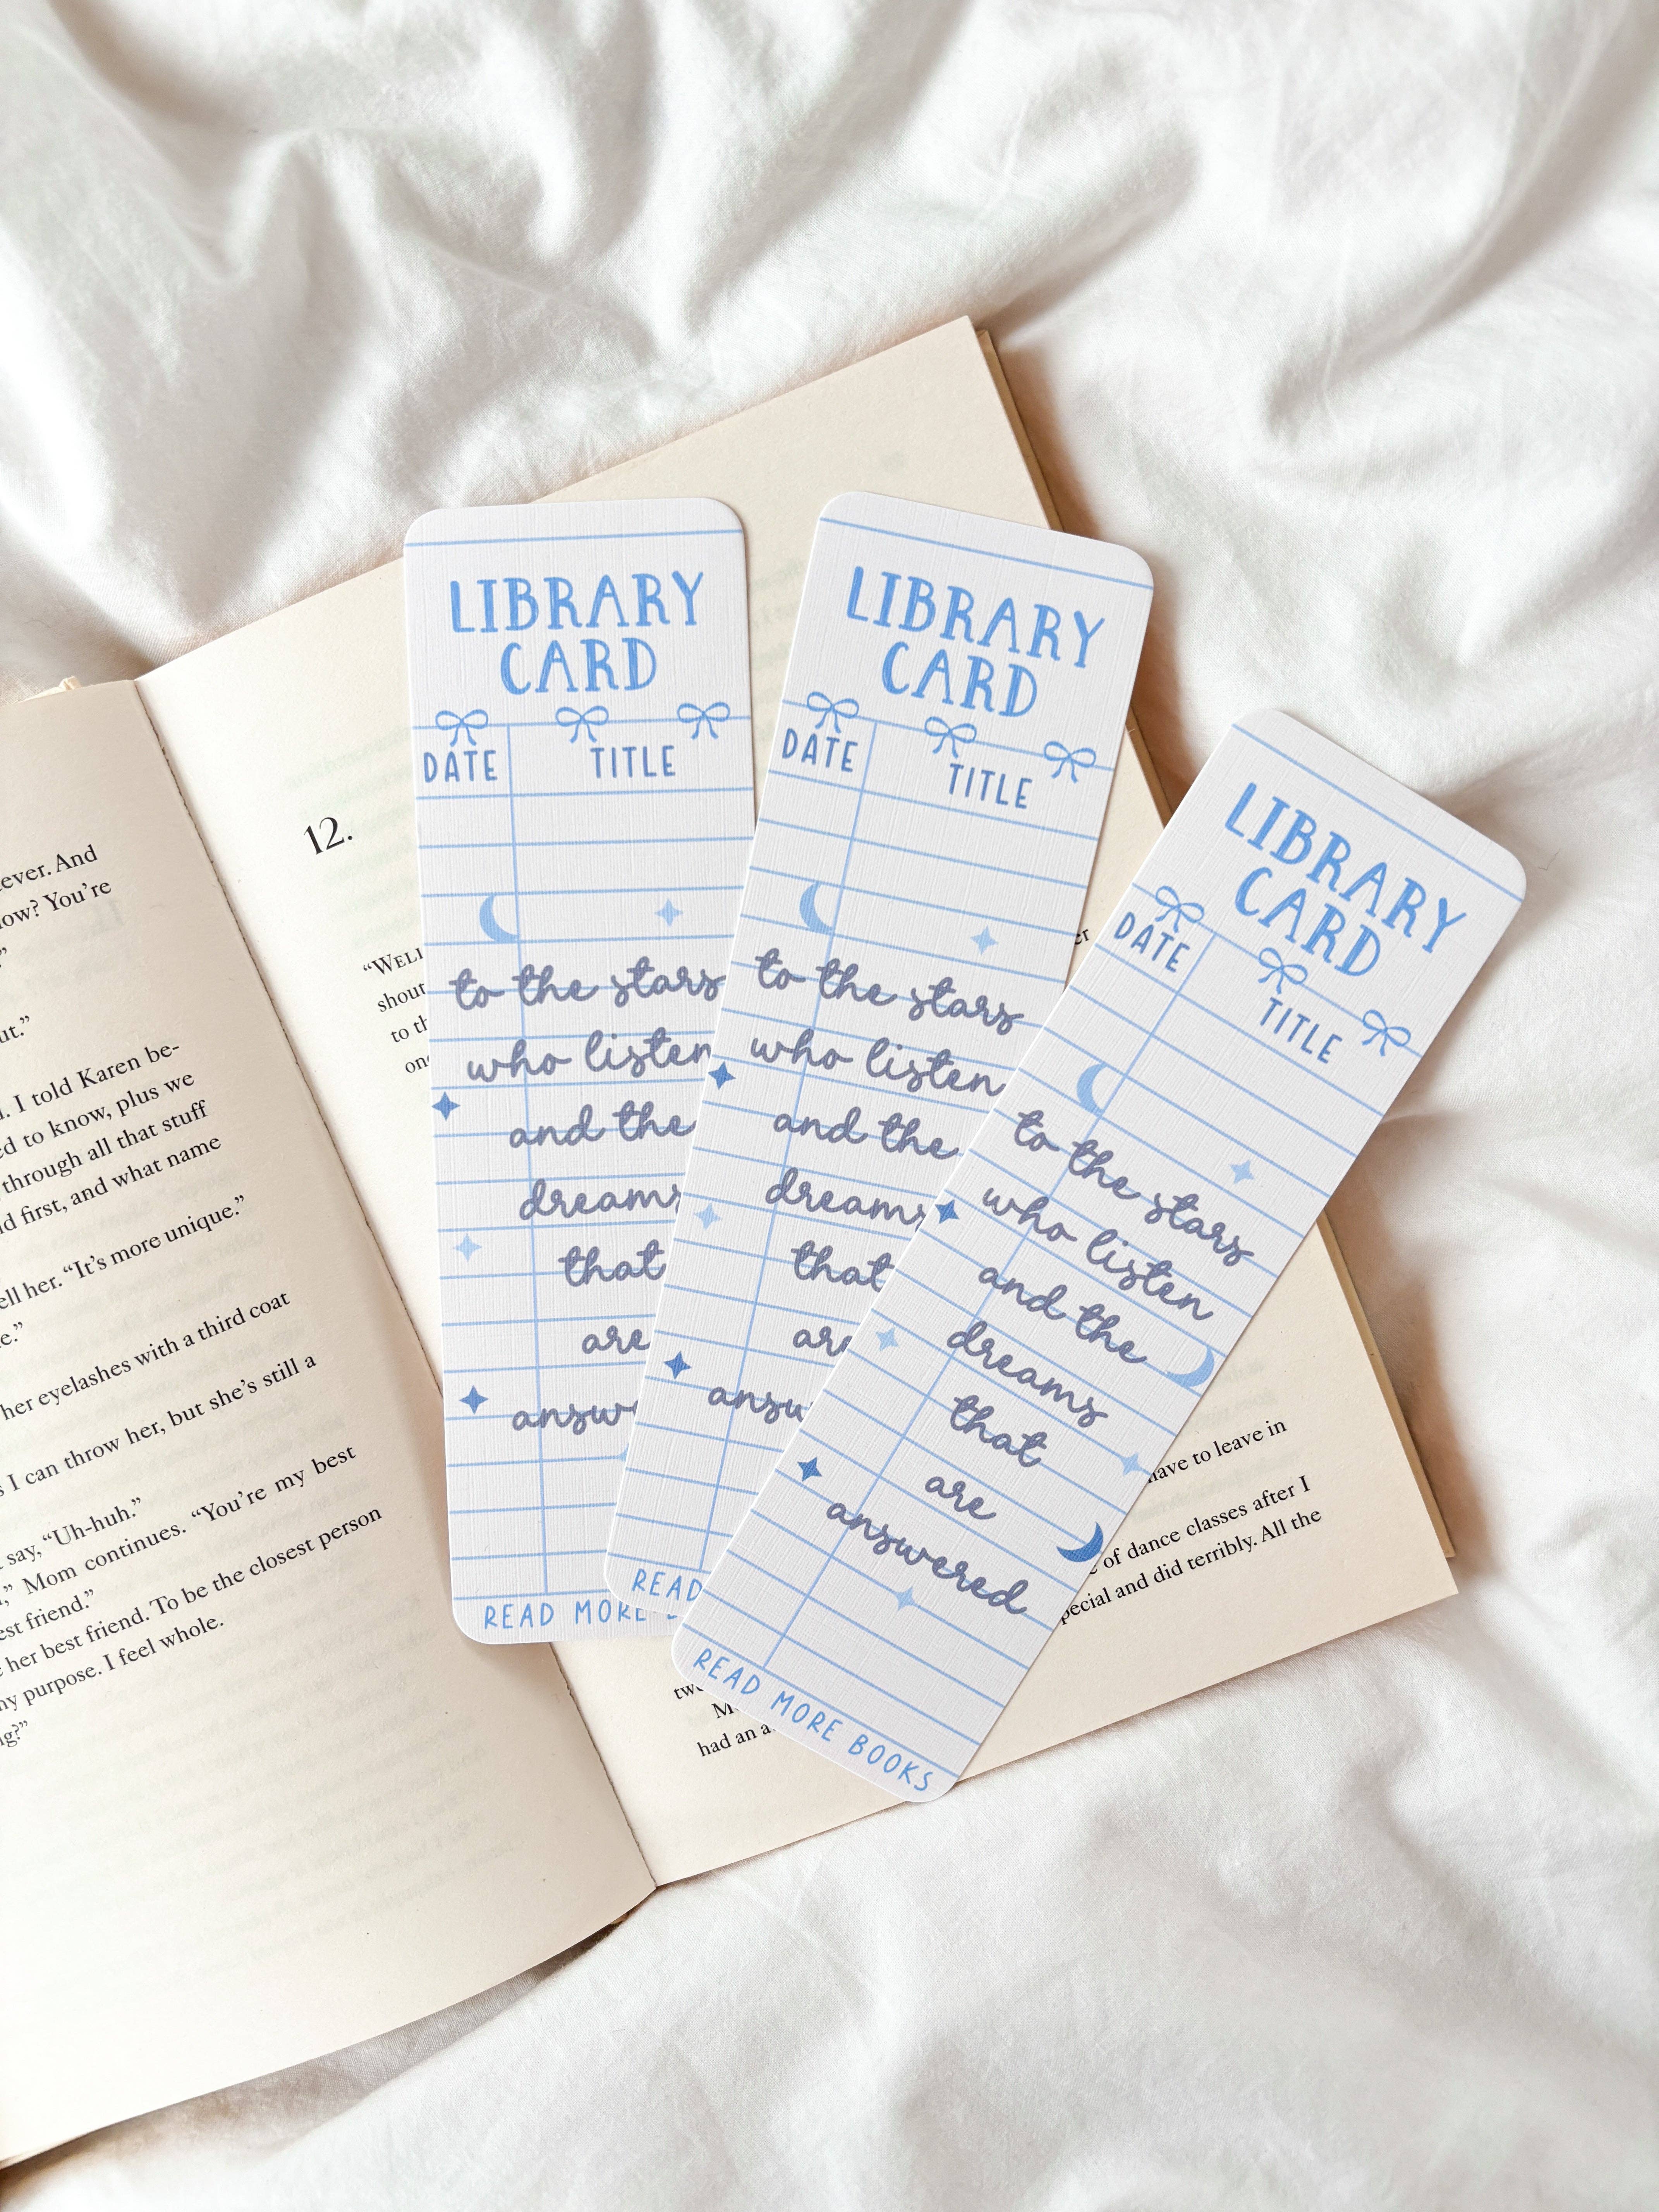 ever. And
ow? You're
"
ut."
. I told Karen be-
ed to know, plus we
through all that stuff
d first, and what name
ell her. "It's more unique."
e."
her eyelashes with a third coat
s I can throw her, but she's still a
say, "Uh-huh."
," Mom continues. "You're my best
est friend."
her best friend. To be the closest person
my purpose. I feel whole.
ng?"
12.
"WELL
shout
to th
one
er
have to leave in
of dance classes after I
pecial and did terribly. All the
two
M
had an a
LIBRARY
CARD
DATE TITLE
to the stars
who listen
and the
dreams
that
are
answe
READ MORE
LIBRARY
CARD
DATE TITLE
to the stars
who listen
and the
dreams
that
are
answ
READ
LIBRARY
CARD
DATE TITLE
to the stars
who listen
and the
dreams
that
are
answered
READ MORE BOOKS